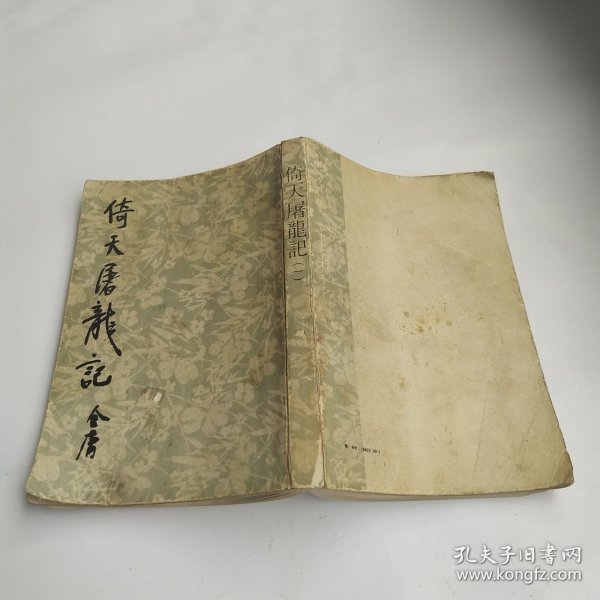 倚天屠龍記 金庸
倚天屠龍記(一)
孔夫子旧書网
www.kongfz.com